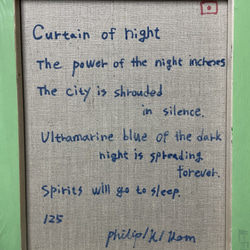 Curtain of night
The power of the night increases
The city is shrouded
in silence.
Ultramarine blue of the dark
night is spreading
forever.
Spirits will go to sleep.
125